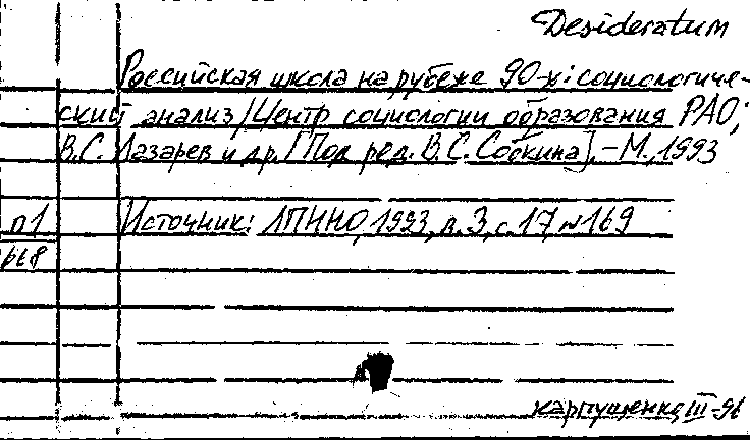 Desideratum
Российская школа на рубеже 90-х: социологиче-
ский анализ/Центр социологии образования РАО;
В.С. Лазарев и др. [Под ред. В.С. Собкина]. – М., 1993
п1 Источник: ЛПИНО, 1993, в.3, с.17, №169
Карпушенко III-96